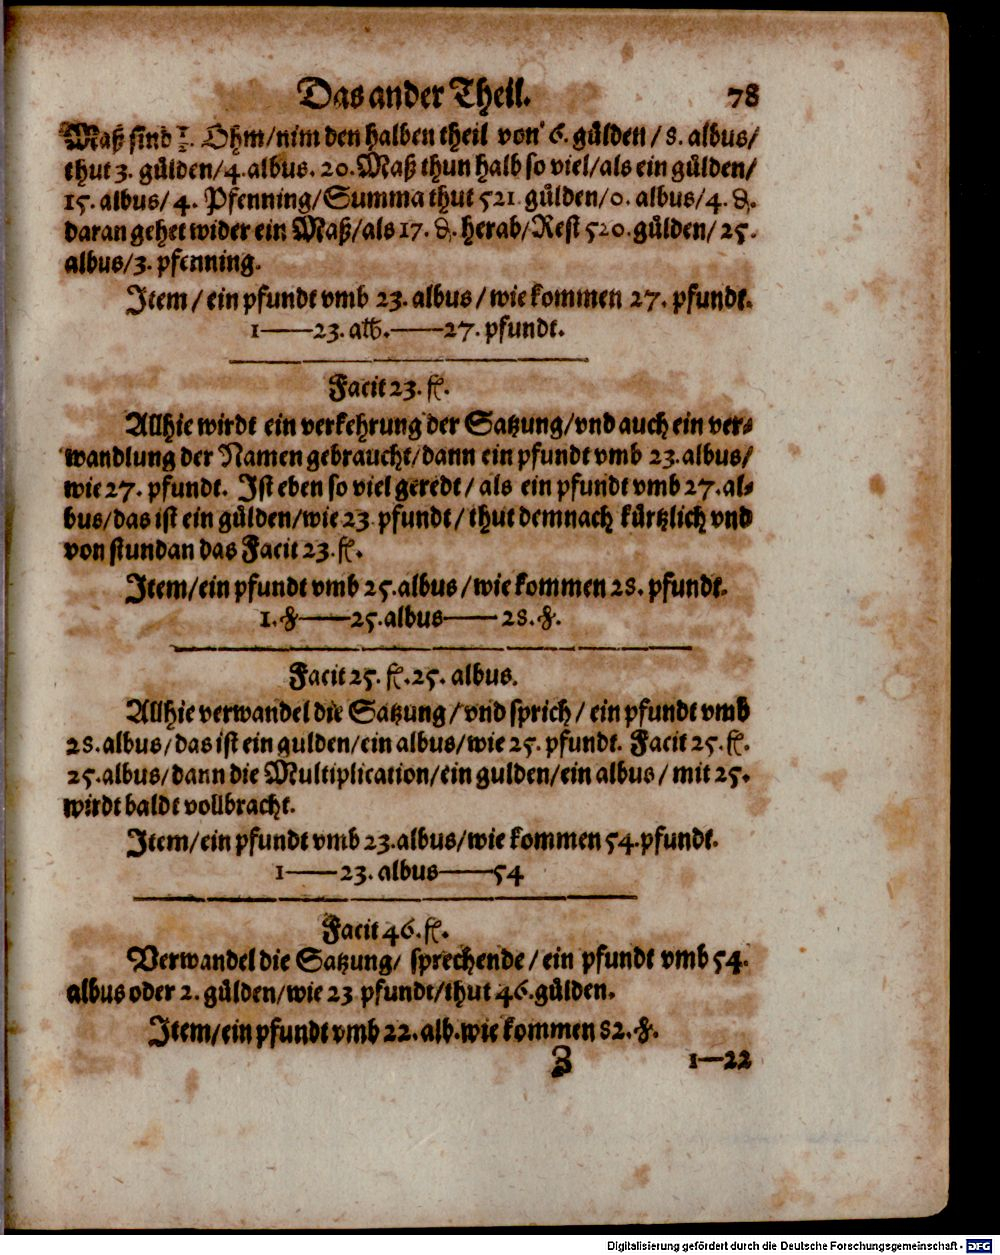 Das ander Theil. 78
Maß sind ½. Ohm/nim den halben theil von 6. gůlden/8. albus/
thut 3. gůlden/4. albus. 20. Maß thun halb so viel/als ein gůlden/
15. albus/4. Pfenning/Summa thut 521 gůlden/0. albus/4. ₰.
daran gehet wider ein Maß/als 17. ₰. herab/Rest 520. gůlden/25.
albus/3. pfenning.
Item/ein pfundt vmb 23. albus/wie kommen 27. pfundt.
1——23. alb.——27. pfundt.
Facit 23. fl.
Allhie wirdt ein verkehrung der Satzung/vnd auch ein ver⸗
wandlung der Namen gebraucht/dann ein pfundt vmb 23. albus/
wie 27. pfundt. Ist eben so viel geredt/als ein pfundt vmb 27. al⸗
bus/das ist ein gůlden/wie 23 pfundt/thut demnach kůrtzlich vnd
von stundan das Facit 23. fl.
Item/ein pfundt vmb 25. albus/wie kommen 28. pfundt.
1. ℔——25. albus——28. ℔.
Facit 25. fl. 25. albus.
Allhie verwandel die Satzung/vnd sprich/ein pfundt vmb
28. albus/das ist ein gulden/ein albus/wie 25. pfundt. Facit 25. fl.
25. albus/dann die Multiplication/ein gulden/ein albus/mit 25.
wirdt baldt vollbracht.
Item/ein pfundt vmb 23. albus/wie kommen 54. pfundt.
1——23. albus——54
Facit 46. fl.
Verwandel die Satzung/sprechende/ein pfundt vmb 54.
albus oder 2. gůlden/wie 23 pfundt/thut 46. gůlden.
Item/ein pfundt vmb 22. alb. wie kommen 82. ℔.
Z 1—22
Digitalisierung gefördert durch die Deutsche Forschungsgemeinschaft - DFG